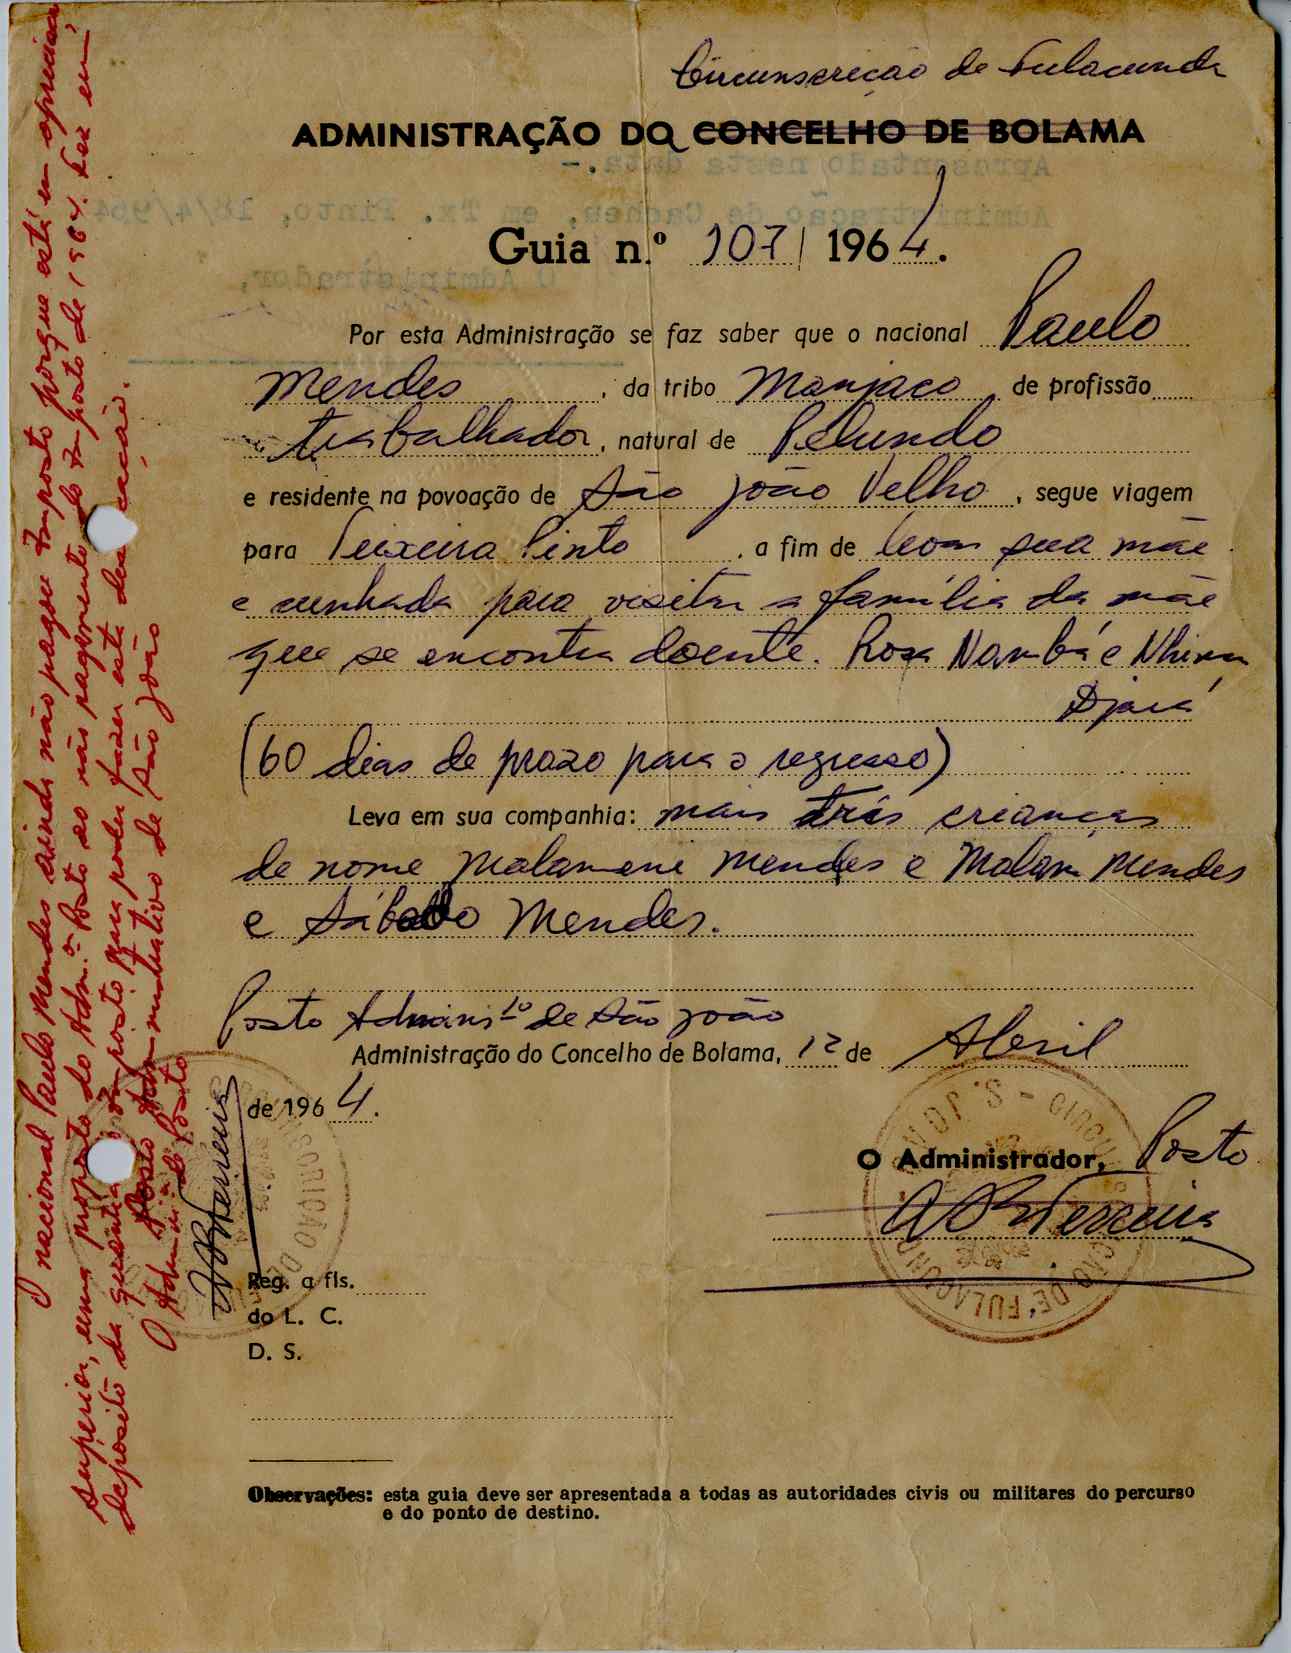 Circunscrição de Fulacunda
ADMINISTRAÇÃO DA CONCELHO DE BOLAMA
Guia n.º 107/1964.
Por esta Administração se faz saber que o nacional Paulo
Mendes, da tribo Manjaco de profissão
trabalhador, natural de Pelundo
e residente na povoação de São João Velho, segue viagem
para Teixeira Pinto, a fim de levar sua mãe
e cunhada para visitar a família da mãe
que se encontra doente. Rosa Nambá e Nhima
Djará
(60 dias de prazo para o regresso)
Leva em sua companhia: mais três crianças
de nome Malameni Mendes e Malam Mendes
e Sábado Mendes.
Posto Adminis.to de São João
Administração do Concelho de Bolama, 12 de Abril
de 1964.
O Administrador, Posto
Ferreira
Reg. a fls.
do L. C.
D. S.
Observações: esta guia deve ser apresentada a todas as autoridades civis ou militares do percurso
e do ponto de destino.
O nacional Paulo Mendes ainda não pagou Imposto porque está em apreciação
superior, uma proposta do Adm.or Posto ao não pagamento do Imposto de 1964. Fez um
depósito da garantia do imposto para poder fazer esta deslocação.
Posto Administrativo de São João
O Adm. do Posto
Ferreira
Apresentado nesta data.-
Administração de Cacheu, em Tx. Pinto, 18/4/964
O Administrador,
CIRCUNSCRIÇÃO DE FULACUNDA